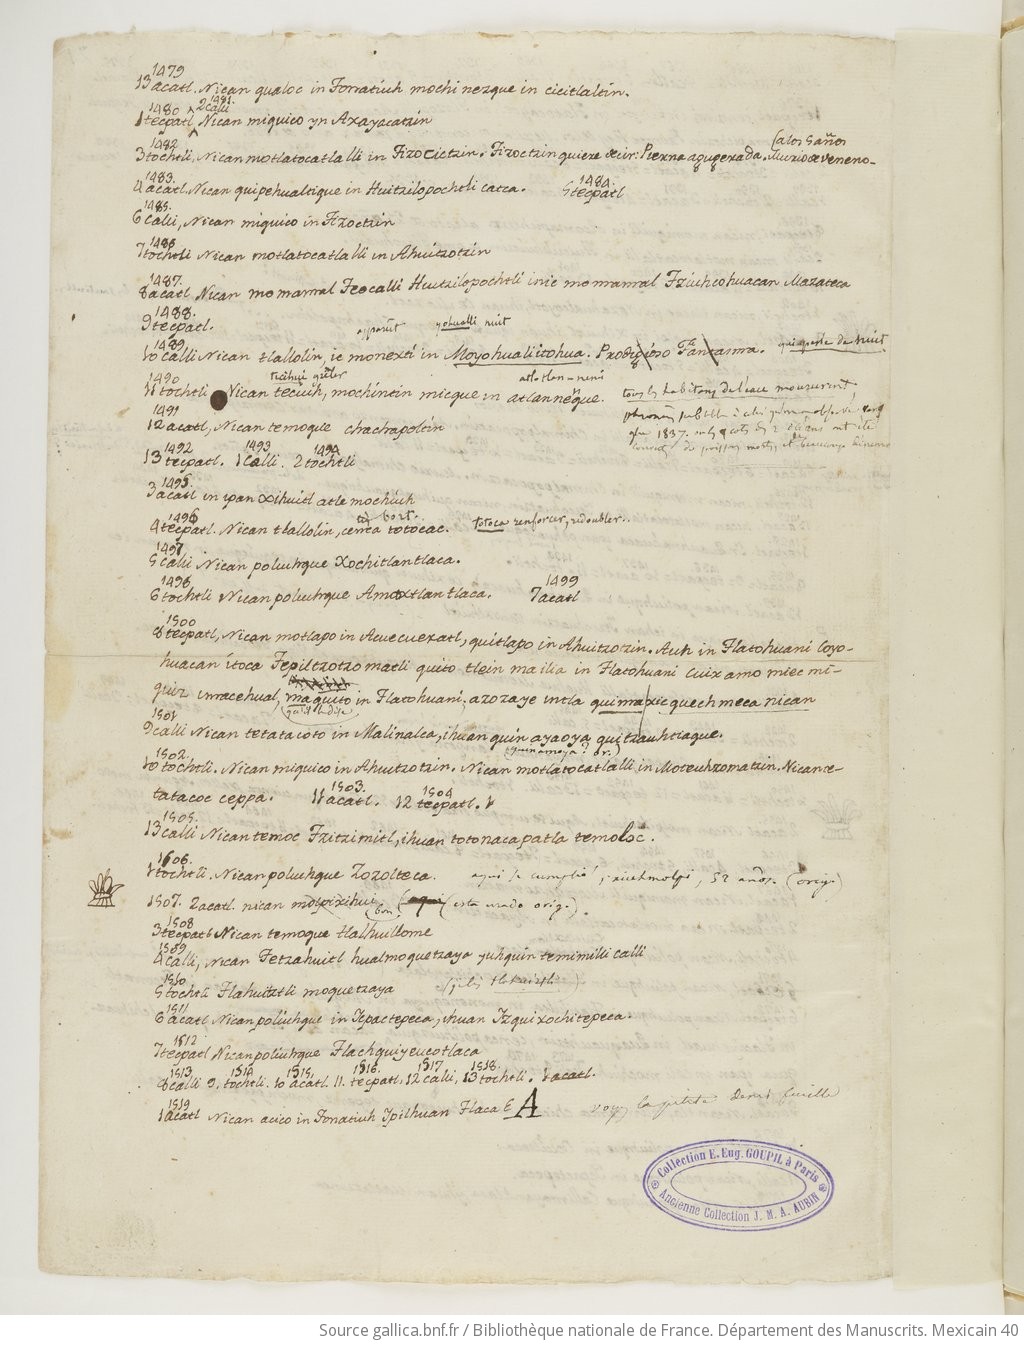 1479
13 acatl. Nican qualoc in Tonatiuh mochi nezque in cicitlaltin.
1480 2 calli 1481.
1 tecpatl Nican miquico yn Axayacatzin
1482 a los 5 años
3 tochtli, Nican motlatocatlalli in Tizocictzin. Tizoctzin quiere decir: Pierna agugerada. Murio de veneno-
1483. 1484.
4 acatl Nican quipehualtique in Huitzilopochtli catca. 5 tecpatl
1485.
6 calli, Nican miquico in Tizoctzin
1486
7 tochtli Nican motlatocatlalli in Ahuitzotzin
1487.
8 acatl Nican momamal Teocalli Huitzilopochtli inic momamal Tziuhcohuacan Mazateca
1488.
9 tecpatl. apparuit yohualli nuit
1489
10 calli Nican tlallolin, ic monexti in Moyohualitohua. Prodigioso Fantasma. qui parle de nuit
1490 tecihui grêler atlatlan-nemi
11 tochtli Nican teciuh, mochintin micque in atlannenque. tous les habitans de l'eau moururent,
1491
12 acatl, Nican temoque chachapoltin
1492 1493 1494
13 tecpatl. 1 calli. 2 tochtli
1495.
3 acatl in ipan oxihuitl atle mochiuh
1496 fort.
4 tecpatl. Nican tlallolin, cenca totocac. totoca renforcer, redoubler..
1497
5 calli Nican poliuhque Xochitlantlaca.
1498 1499
6 tochtli Nican poliuhque Amaxtlantlaca. 7 acatl
1500
8 tecpatl, Nican motlapo in Acuecuexatl, quitlapo in Ahuitzotzin. Auh in Tlatohuani Coyo-
huacan itoca Tepiltzotzomatli quito tlein mailia in Tlatohuani cuix amo miec mi-
quiz in macehual, maquito in Tlatohuani. azozaye intla quimaxic quechmeca nican
1501
9 calli Nican tetatacoto in Malinalca, ihuan quin ayaoya quitzauhtiaque.
1502. (quinamoya? or.)
10 tochtli. Nican miquico in Ahuitzotzin. Nican motlatocatlalli in Moteuhzomatzin. Nican te-
1503. 1504
tatacoc ceppa. 11 acatl. 12 tecpatl.
1505.
13 calli Nican temoc Tzitzimitl, ihuan totonacapatla temoloc.
1506.
1 tochtli. Nican poliuhque Zozolteca. aqui se cumplió, 52 años. (orig.)
1507. 2 acatl. nican molpixihui (bon) (aqui (esta errado orig.).
1508
3 tecpatl Nican temoque tlalhuillome
1509
4 calli, Nican Tetzahuitl hualmoquetzaya yuhquin temimilli calli
1510
5 tochtli Tlahuitztli moquetzaya
1511
6 acatl Nican poliuhque in Icpactepeca, ihuan Izquixochitepeca.
1512
7 tecpatl Nican poliuhque Tlachquiyeucotlaca
1513 1514 1515, 1516. 1517 1518.
8 calli 9. tochtli. 10 acatl. 11. tecpatl, 12 calli, 13 tochtli. 1 acatl.
1519
1 acatl Nican acico in Tonatiuh Ypilhuan Tlaca E A voyez la petite demi feuille
Collection E. Eug. GOUPIL à Paris
Ancienne Collection J. M. A. AUBIN
Source gallica.bnf.fr / Bibliothèque nationale de France. Département des Manuscrits. Mexicain 40